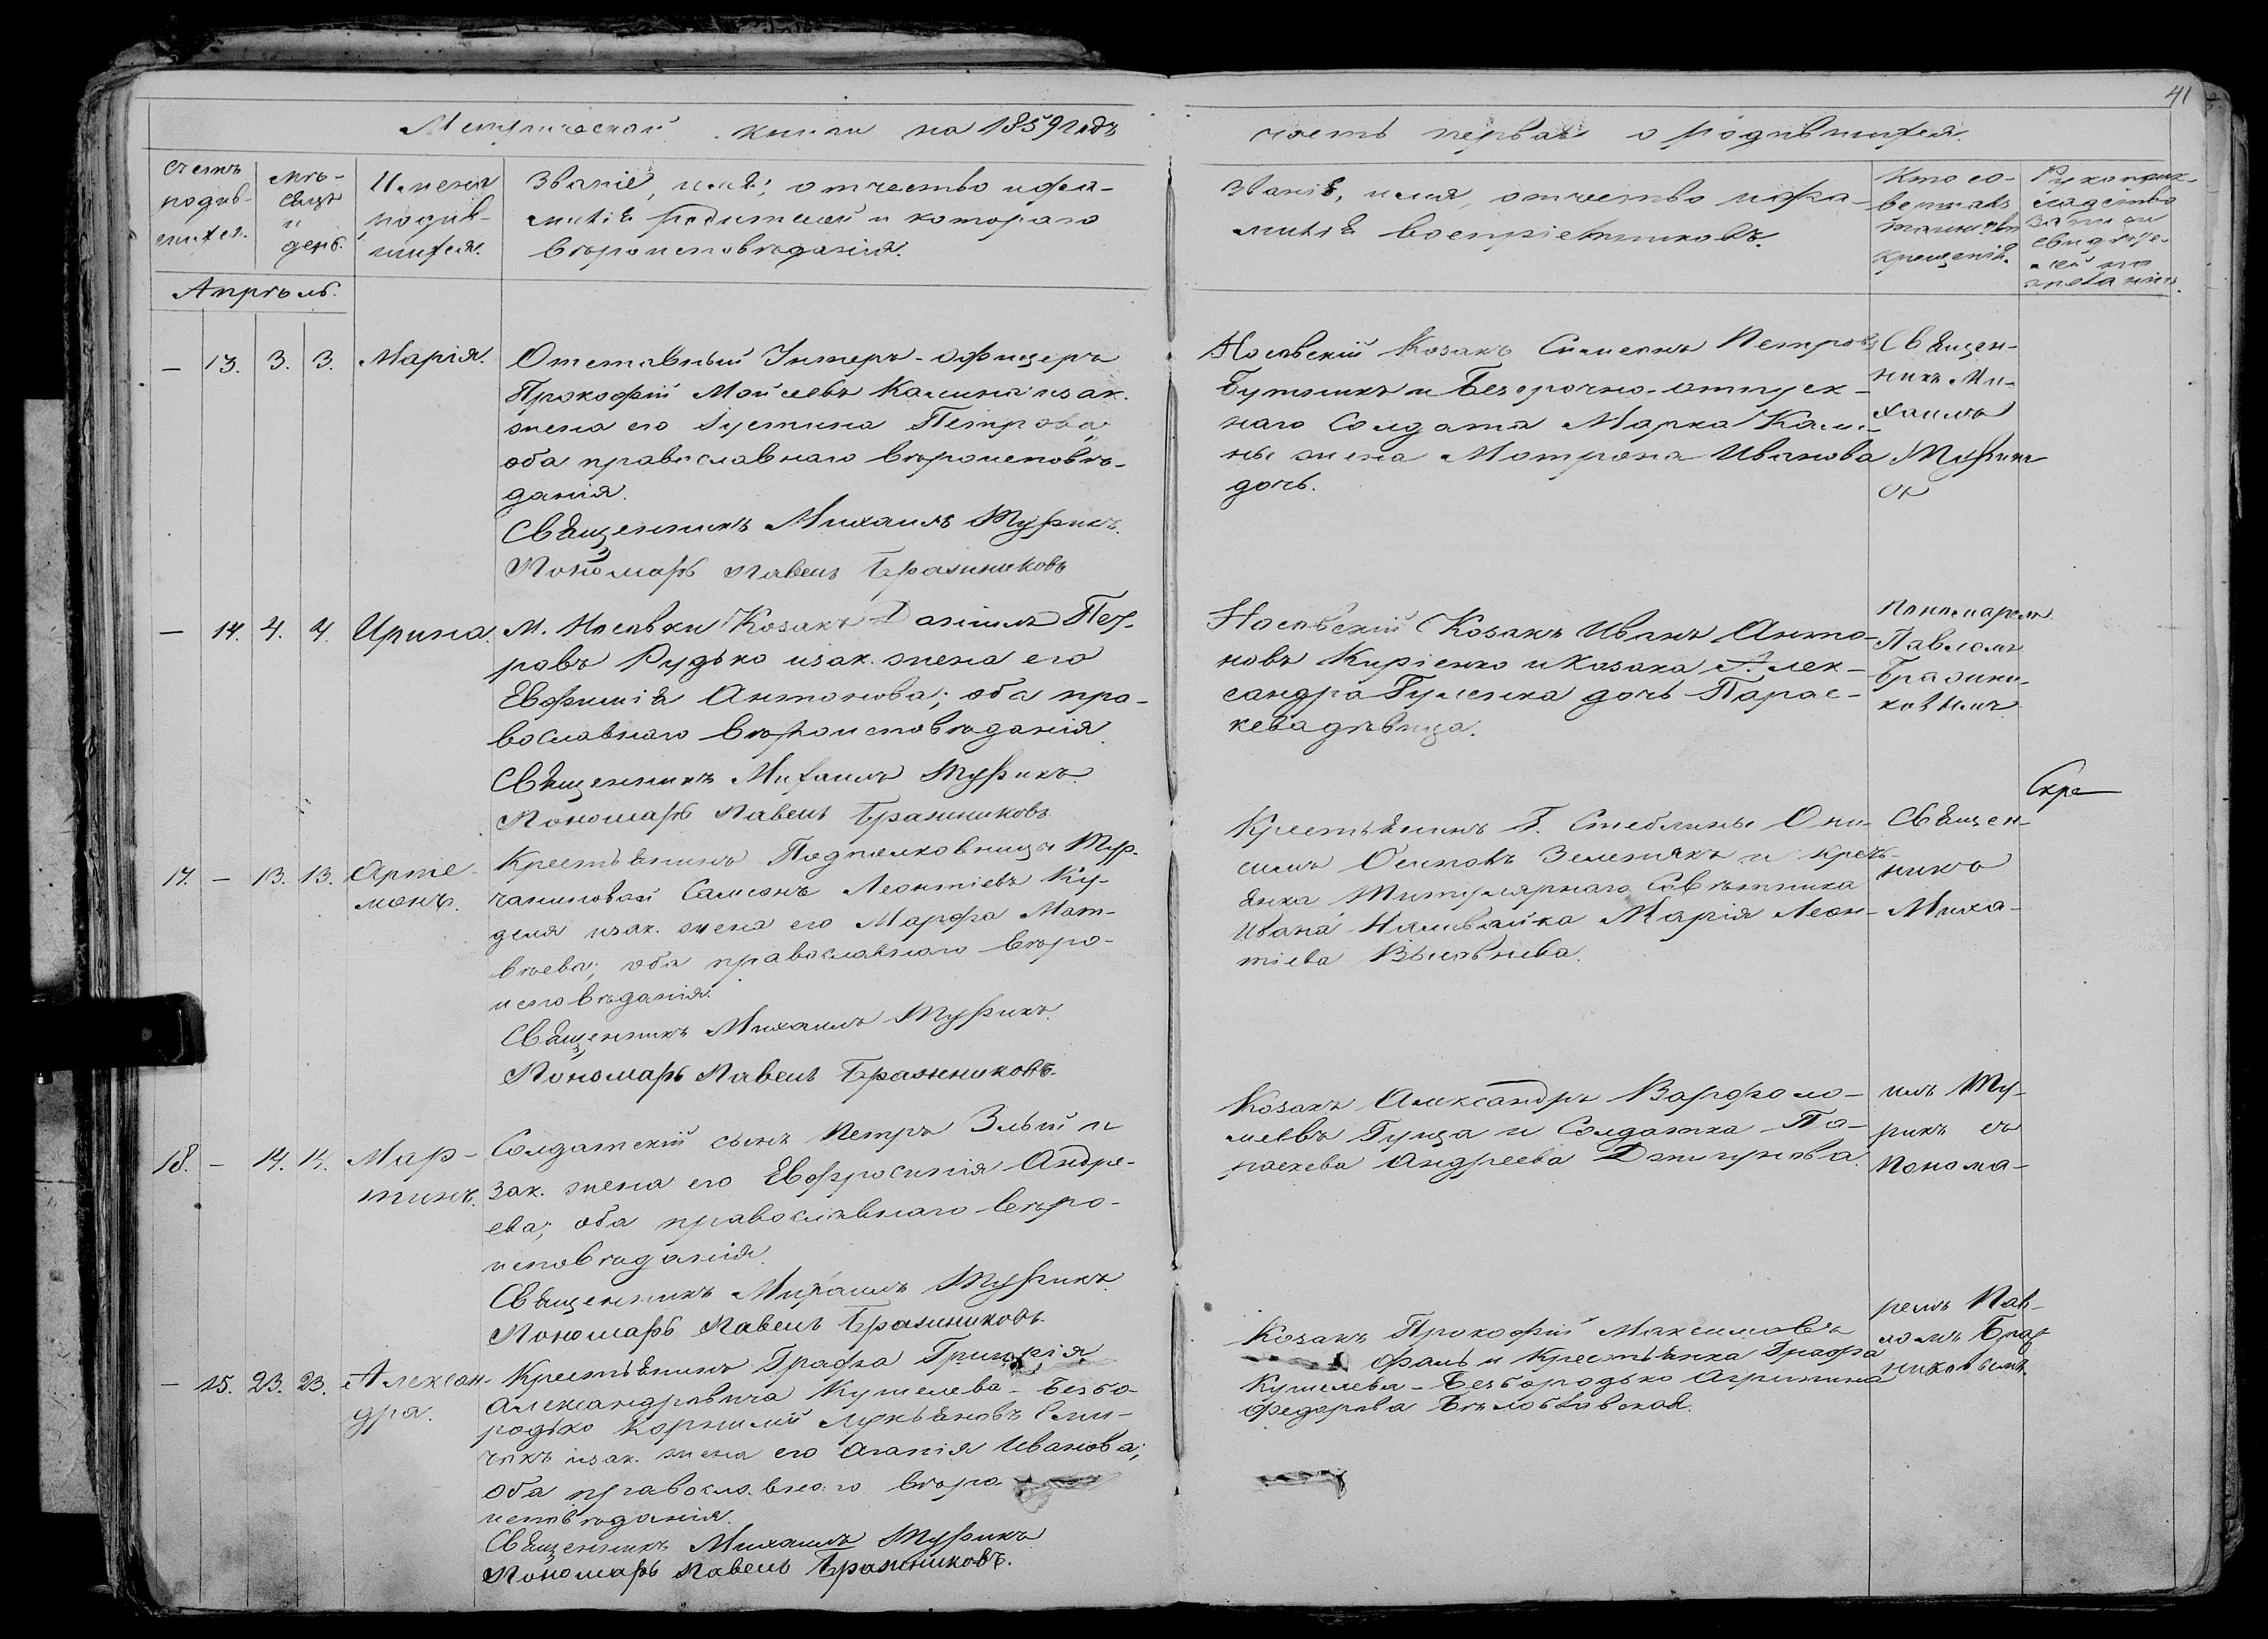 41
Метрической книги на 1859 годъ
часть первая о родившихся.
Счетъ
родив-
шихся.
Мѣ-
сяцъ
и
день.
Имена
родив-
шихся.
Званіе, имя, отчество и фа-
милія родителей и котораго
вѣроисповѣданія.
Званіе, имя, отчество и фа-
милія воспріемниковъ.
Кто со-
вершалъ
таинство
крещенія.
Рукоприк-
ладство
свидѣте-
лей по
желанію.
Апрѣль.
— 13. 3. 3. Марія.
Отставный Унтеръ-офицеръ
Прокофій Моисеевъ Калина и зак.
жена его Іустина Петрова;
оба православнаго вѣроисповѣ-
данія.
Священникъ Михаилъ Турикъ.
Пономарь Павелъ Бражниковъ
Носовскій Козакъ Симеонъ Петровъ
Бутникъ и Безсрочно-отпуск-
наго Солдата Марка Кали-
ны жена Мотрона Иванова
дочь.
Священ-
никъ Ми-
хаилъ
Турикъ
съ
— 14. 4. 4. Ирина.
М. Носовки Козакъ Даніилъ Пет-
ровъ Рудько и зак. жена его
Евфимія Антонова; оба пра-
вославнаго вѣроисповѣданія
Священникъ Михаилъ Турикъ.
Пономарь Павелъ Бражниковъ
Носовскій Козакъ Иванъ Анто-
новъ Киріенко и Козака Алек-
сандра Гуменка дочь Парас-
кева дѣвица.
Пономаремъ
Павломъ
Бражни-
ковымъ
Скре
17. — 13. 13. Арте-
монъ.
Крестьянинъ Подполковницы Тур-
чаниновой Самсонъ Леонтіевъ Ку-
деля и зак. жена его Марфа Мат-
вѣева; оба православнаго вѣро-
исповѣданія.
Священникъ Михаилъ Турикъ.
Пономарь Павелъ Бражниковъ.
Крестьянинъ Г. Стеблины Они-
симъ Осиповъ Зеленякъ и крест-
янка Титулярнаго Совѣтника
Ивана Наливайка Марія Леон-
тіева
Священ-
никъ
Миха-
18. — 14. 14. Мар-
тинъ.
Солдатскій сынъ Петръ Злый и
зак. жена его Евфросинія Андре-
ева; оба православнаго вѣро-
исповѣданія.
Священникъ Михаилъ Турикъ.
Пономарь Павелъ Бражниковъ.
Козакъ Александръ Варфоло-
меевъ Гуща и Солдатка Па-
раскева Андреева Джигунова.
илъ Ту-
рикъ съ
Понома-
— 15. 23. 23. Алексан-
дра.
Крестьянинъ Графа Григорія
Александровича Кушелева-Безбо-
родько Корнилій Лукьяновъ Сли-
чикъ и зак. жена его Агапія Иванова;
оба православнаго вѣро
исповѣданія.
Священникъ Михаилъ Турикъ
Пономарь Павелъ Бражниковъ.
Козакъ Прокофій Максимовъ
Фаль и Крестьянка Графа
Кушелева-Безбородько Агрипина
Федорова Бѣлобловская.
ремъ Пав-
ломъ Браж
никовымъ.